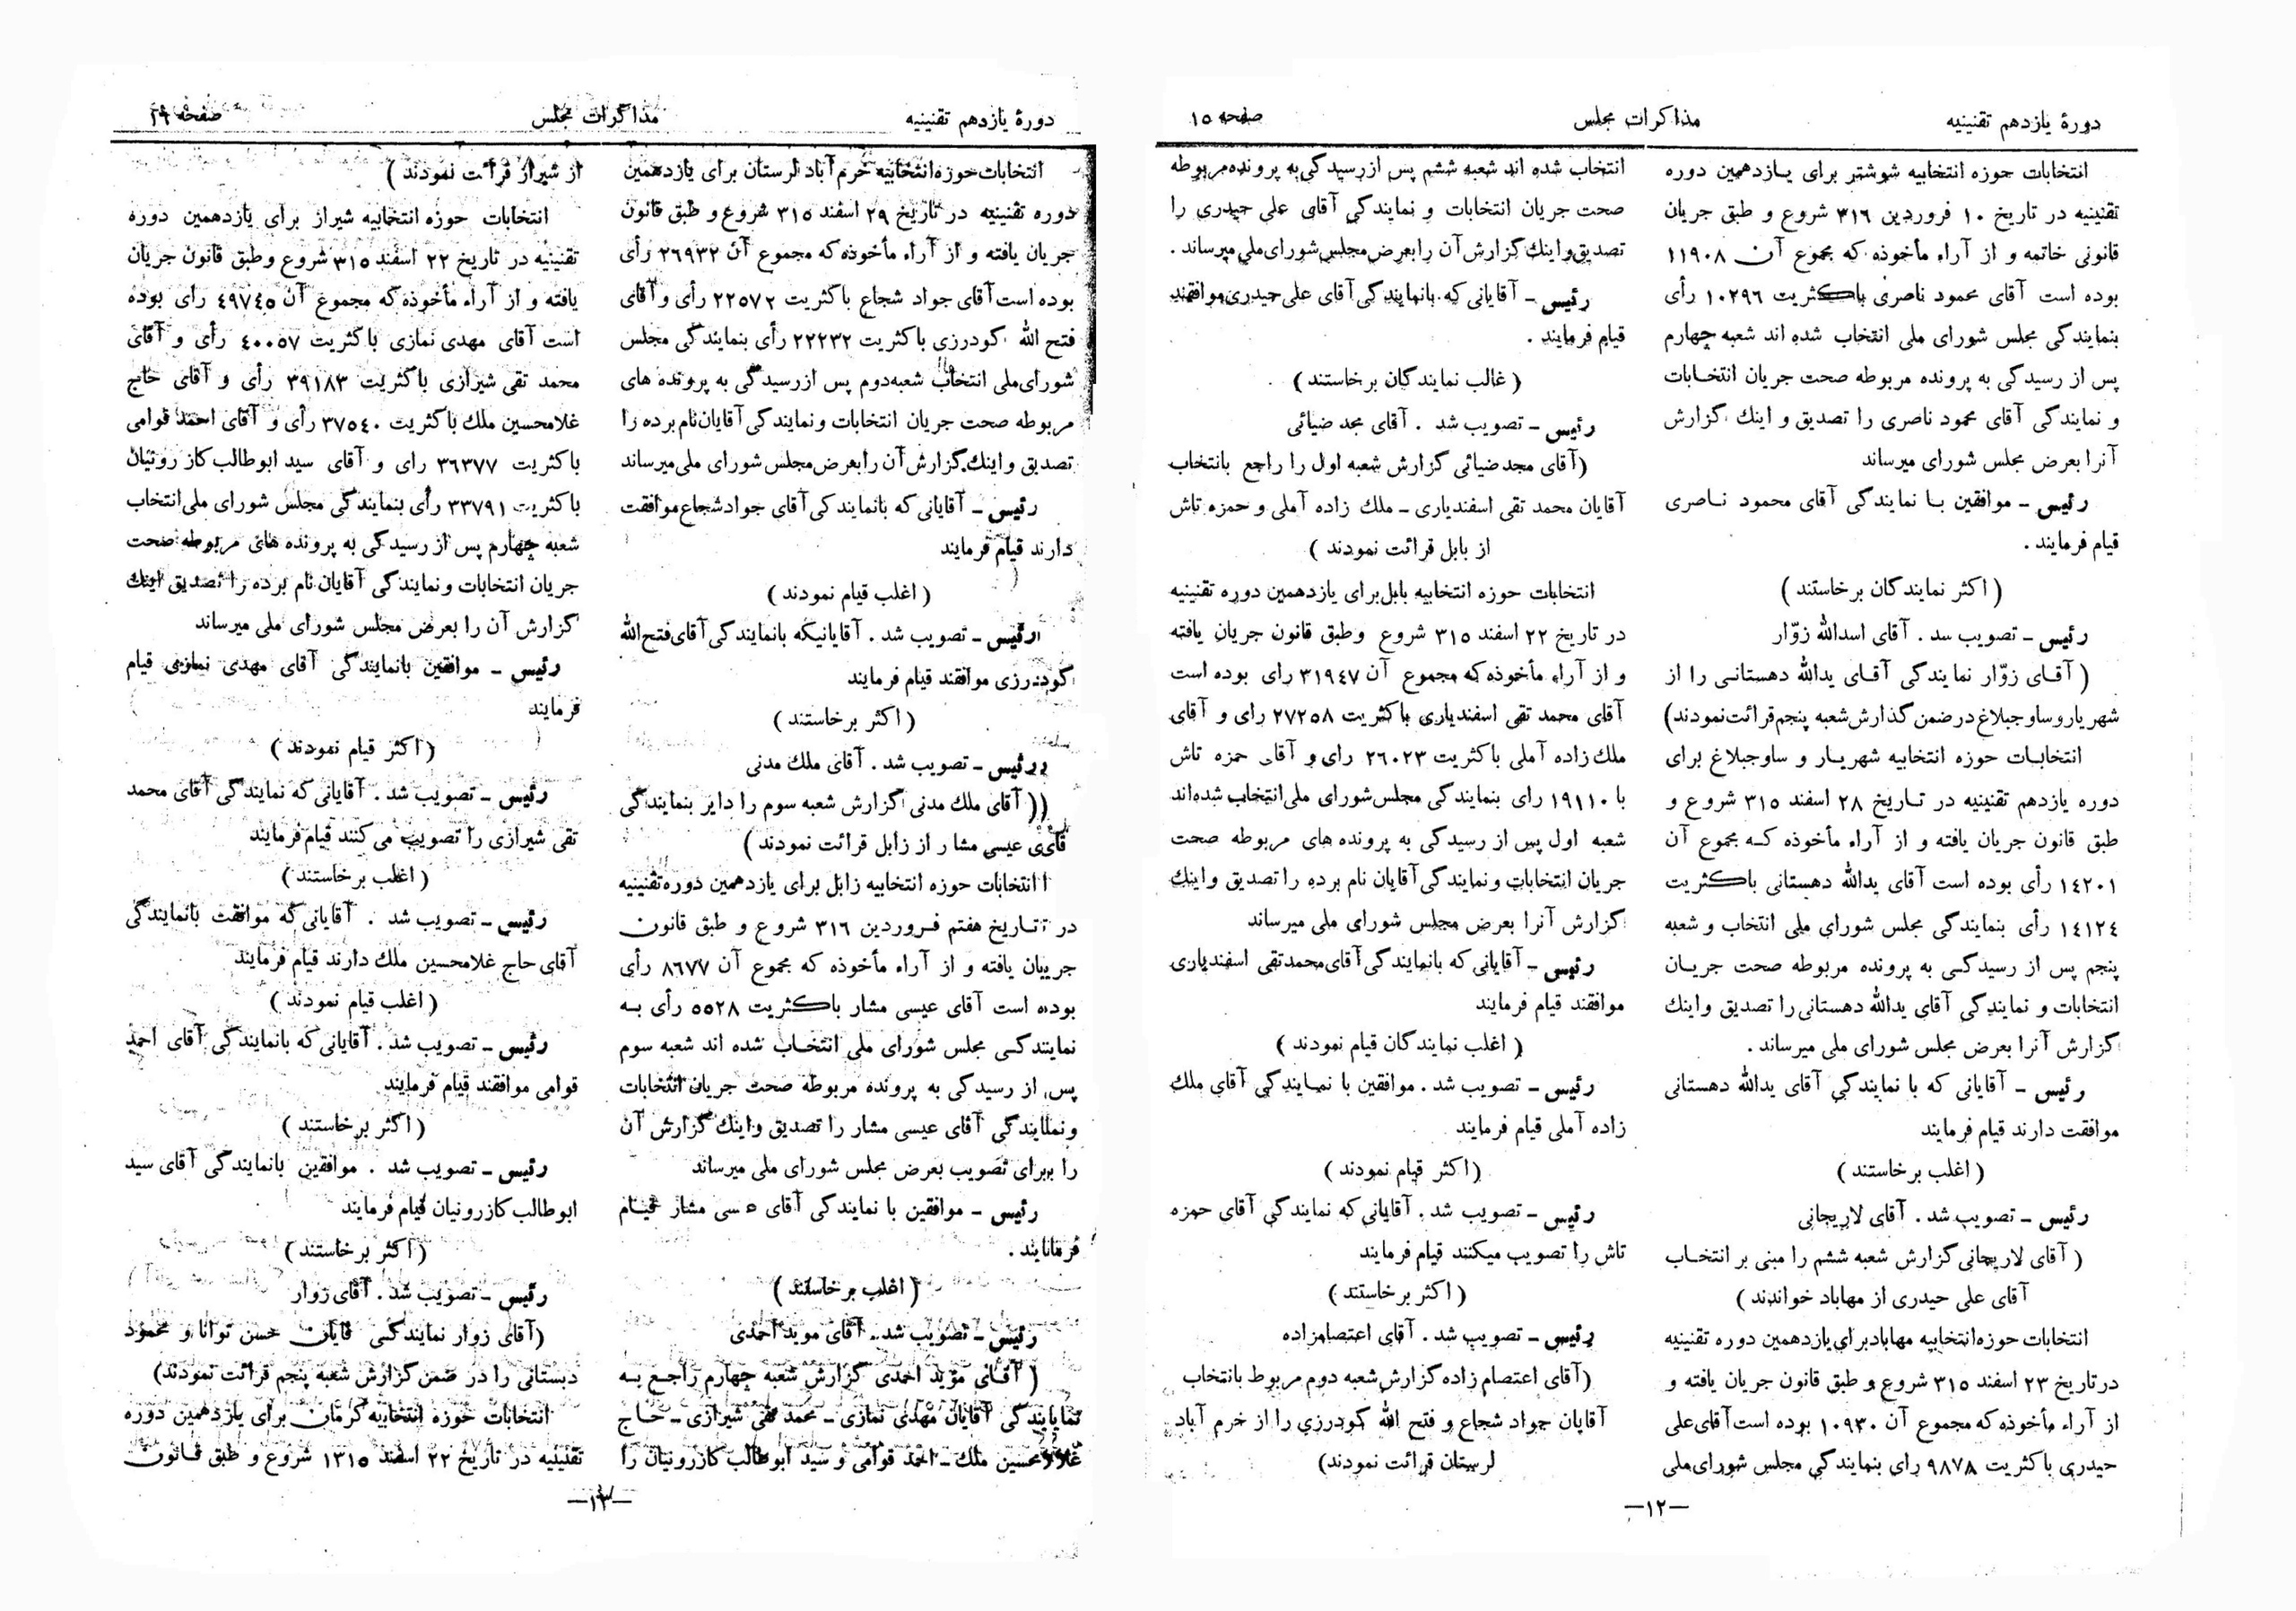 دورهٔ یازدهم تقنینیه
مذاکرات مجلس
صفحه ۱۵
انتخابات حوزه انتخابیه شوشتر برای یـازدهمین دوره
تقنینیه در تاریخ ۱۰ فروردین ۳۱۶ شروع و طبق جریان
قانونی خاتمه و از آراء مأخوذه که مجموع آن ۱۱۹۰۸
بوده است آقای محمود ناصری باکثریت ۱۰۲۹۶ رأی
بنمایندگی مجلس شورای ملی انتخاب شده اند شعبه چهارم
پس از رسیدگی به پرونده مربوطه صحت جریان انتخابات
و نمایندگی آقای محمود ناصری را تصدیق و اینك گزارش
آنرا بعرض مجلس شورای میرساند
رئیس ـ موافقین بـا نمایندگی آقای محمود نـاصری
قیام فرمایند .
( اکثر نمایندگان برخاستند )
رئیس ـ تصویب سد . آقای اسدالله زوّار
( آقـای زوّار نمایندگی آقـای یدالله دهستانـی را از
شهریار و ساوجبلاغ در ضمن گذارش شعبه پنجم قرائت نمودند)
انتخابـات حوزه انتخابیه شهریـار و ساوجبلاغ برای
دوره یازدهم تقنینیه در تـاریخ ۲۸ اسفند ۳۱۵ شروع و
طبق قانون جریان یافته و از آراء مأخوذه کـه مجموع آن
۱٤۲۰۱ رأی بوده است آقای یدالله دهستانی باکثریت
۱٤۱۲٤ رأی بنمایندگی مجلس شورای ملی انتخاب و شعبه
پنجم پس از رسیدگـی به پرونده مربوطه صحت جریـان
انتخابات و نمایندگی آقای یدالله دهستانی را تصدیق و اینك
گزارش آنرا بعرض مجلس شورای ملی میرساند .
رئیس ـ آقایانی که با نمایندگی آقای یدالله دهستانی
موافقت دارند قیام فرمایند
( اغلب برخاستند )
رئیس ـ تصویب شد . آقای لاریجانی
( آقای لاریجانی گزارش شعبه ششم را مبنی بر انتخـاب
آقای علی حیدری از مهاباد خواندند )
انتخابات حوزه انتخابیه مهاباد برای یازدهمین دوره تقنینیه
در تاریخ ۲۳ اسفند ۳۱۵ شروع و طبق قانون جریان یافته و
از آراء مأخوذه که مجموع آن ۱۰۹۳۰ بوده است آقای علی
حیدری باکثریت ۹۸۷۸ رای بنمایندگی مجلس شورای ملی
انتخاب شده اند شعبه ششم پس از رسیدگی به پرونده مربوطه
صحت جریان انتخابات و نمایندگی آقای علی حیدری را
تصدیق و اینك گزارش آن را بعرض مجلس شورای ملی میرساند .
رئیس ـ آقایانی که بانمایندگی آقای علی حیدری موافقند
قیام فرمایند .
( غالب نمایندگان برخاستند )
رئیس ـ تصویب شد . آقای مجد ضیائی
(آقای مجد ضیائی گزارش شعبه اول را راجع بانتخاب
آقایان محمد تقی اسفندیاری ـ ملك زاده آملی و حمزه تاش
از بابل قرائت نمودند )
انتخابات حوزه انتخابیه بابل برای یازدهمین دوره تقنینیه
در تاریخ ۲۲ اسفند ۳۱۵ شروع وطبق قانون جریان یافته
و از آراء مأخوذه که مجموع آن ۳۱۹٤۷ رای بوده است
آقای محمد تقی اسفندیاری باکثریت ۲۷۲۵۸ رای و آقای
ملك زاده آملی باکثریت ۲۶۰۲۳ رای و آقای حمزه تاش
با ۱۹۱۱۰ رای بنمایندگی مجلس شورای ملی انتخاب شده اند
شعبه اول پس از رسیدگی به پرونده های مربوطه صحت
جریان انتخابات و نمایندگی آقایان نام برده را تصدیق و اینك
گزارش آنرا بعرض مجلس شورای ملی میرساند
رئیس ـ آقایانی که بانمایندگی آقای محمد تقی اسفندیاری
موافقند قیام فرمایند
( اغلب نمایندگان قیام نمودند )
رئیس ـ تصویب شد . موافقین با نمـایندگی آقای ملك
زاده آملی قیام فرمایند
(اکثر قیام نمودند )
رئیس ـ تصویب شد . آقایانی که نمایندگی آقای حمزه
تاش را تصویب میکنند قیام فرمایند
( اکثر برخاستند )
رئیس ـ تصویب شد . آقای اعتصام زاده
(آقای اعتصام زاده گزارش شعبه دوم مربوط بانتخاب
آقایان جواد شجاع و فتح الله گودرزی را از خرم آباد
لرستان قرائت نمودند)
—۱۲—
دورهٔ یازدهم تقنینیه
مذاکرات مجلس
صفحه
انتخابات حوزه انتخابیه خرم آباد لرستان برای یازدهمین
دوره تقنینیه در تاریخ ۲۹ اسفند ۳۱۵ شروع و طبق قانون
جریان یافته و از آراء مأخوذه که مجموع آن ۲۶۹۳۲ رأی
بوده است آقای جواد شجاع باکثریت ۲۲۵۷۲ رأی و آقای
فتح الله گودرزی باکثریت ۲۲۲۳۲ رأی بنمایندگی مجلس
شورای ملی انتخاب شعبه دوم پس از رسیدگی به پرونده های
مربوطه صحت جریان انتخابات و نمایندگی آقایان نام برده را
تصدیق و اینك گزارش آن را بعرض مجلس شورای ملی میرساند
رئیس ـ آقایانی که بانمایندگی آقای جواد شجاع موافقت
دارند قیام فرمایند
( اغلب قیام نمودند )
رئیس ـ تصویب شد . آقایانیکه بانمایندگی آقای فتح الله
گودرزی موافقند قیام فرمایند
( اکثر برخاستند )
رئیس ـ تصویب شد . آقای ملك مدنی
(( آقای ملك مدنی گزارش شعبه سوم را دایر بنمایندگی
قای عیسی مشار از زابل قرائت نمودند )
انتخابات حوزه انتخابیه زابل برای یازدهمین دوره تقنینیه
در تـاریخ هفتم فـروردین ۳۱۶ شروع و طبق قانون
جریان یافته و از آراء مأخوذه که مجموع آن ۸۶۷۷ رأی
بوده است آقای عیسی مشار باکثریت ۵۵۲۸ رأی بـه
نمایندگـی مجلس شورای ملی انتخـاب شده اند شعبه سوم
پس از رسیدگی به پرونده مربوطه صحت جریان انتخابات
و نمایندگی آقای عیسی مشار را تصدیق و اینك گزارش آن
را برای تصویب بعرض مجلس شورای ملی میرساند
رئیس ـ موافقین با نمایندگی آقای سی مشار قیـام
فرمایند .
( اغلب برخاستند )
رئیس ـ تصویب شد . آقای موید احمدی
( آقـای مؤید احمدی گزارش شعبه چهارم راجـع بـه
نمایندگی آقایان مهدی نمازی ـ محمد تقی شیرازی ـ حـاج
غلامحسین ملك ـ احمد قوامی و سید ابوطالب کازرونیان را
از شیراز قرائت نمودند )
انتخابات حوزه انتخابیه شیراز برای یازدهمین دوره
تقنینیه در تاریخ ۲۲ اسفند ۳۱۵ شروع وطبق قانون جریان
یافته و از آراء مأخوذه که مجموع آن ٤۹۷٤۵ رای بوده
است آقای مهدی نمازی باکثریت ٤۰۰۵۷ رأی و آقای
محمد تقی شیرازی باکثریت ۳۹۱۸۳ رأی و آقای حاج
غلامحسین ملك باکثریت ۳۷۵٤۰ رأی و آقای احمد قوامی
باکثریت ۳۶۳۷۷ رای و آقای سید ابوطالب کازرونیان
باکثریت ۳۳۷۹۱ رأی بنمایندگی مجلس شورای ملی انتخاب
شعبه چهارم پس از رسیدگی به پرونده های مربوطه صحت
جریان انتخابات و نمایندگی آقایان نام برده را تصدیق اینك
گزارش آن را بعرض مجلس شورای ملی میرساند
رئیس ـ موافقین بانمایندگی آقای مهدی نمازی قیام
فرمایند
(اکثر قیام نمودند )
رئیس ـ تصویب شد . آقایانی که نمایندگی آقای محمد
تقی شیرازی را تصویب می کنند قیام فرمایند
( اغلب برخاستند )
رئیس ـ تصویب شد . آقایانی که موافقت بانمایندگی
آقای حاج غلامحسین ملك دارند قیام فرمایند
( اغلب قیام نمودند )
رئیس ـ تصویب شد . آقایانی که بانمایندگی آقای احمد
قوامی موافقند قیام فرمایند
( اکثر برخاستند )
رئیس ـ تصویب شد . موافقین بانمایندگی آقای سید
ابوطالب کازرونیان قیام فرمایند
(اکثر برخاستند )
رئیس ـ تصویب شد . آقای زوار
(آقای زوار نمایندگـی قایان حسن توانا و محمود
دبستانی را در ضمن گزارش شعبه پنجم قرائت نمودند)
انتخابات حوزه انتخابیه کرمان برای یازدهمین دوره
تقنینیه در تاریخ ۲۲ اسفند ۱۳۱۵ شروع و طبق قـانون
—۱۳—